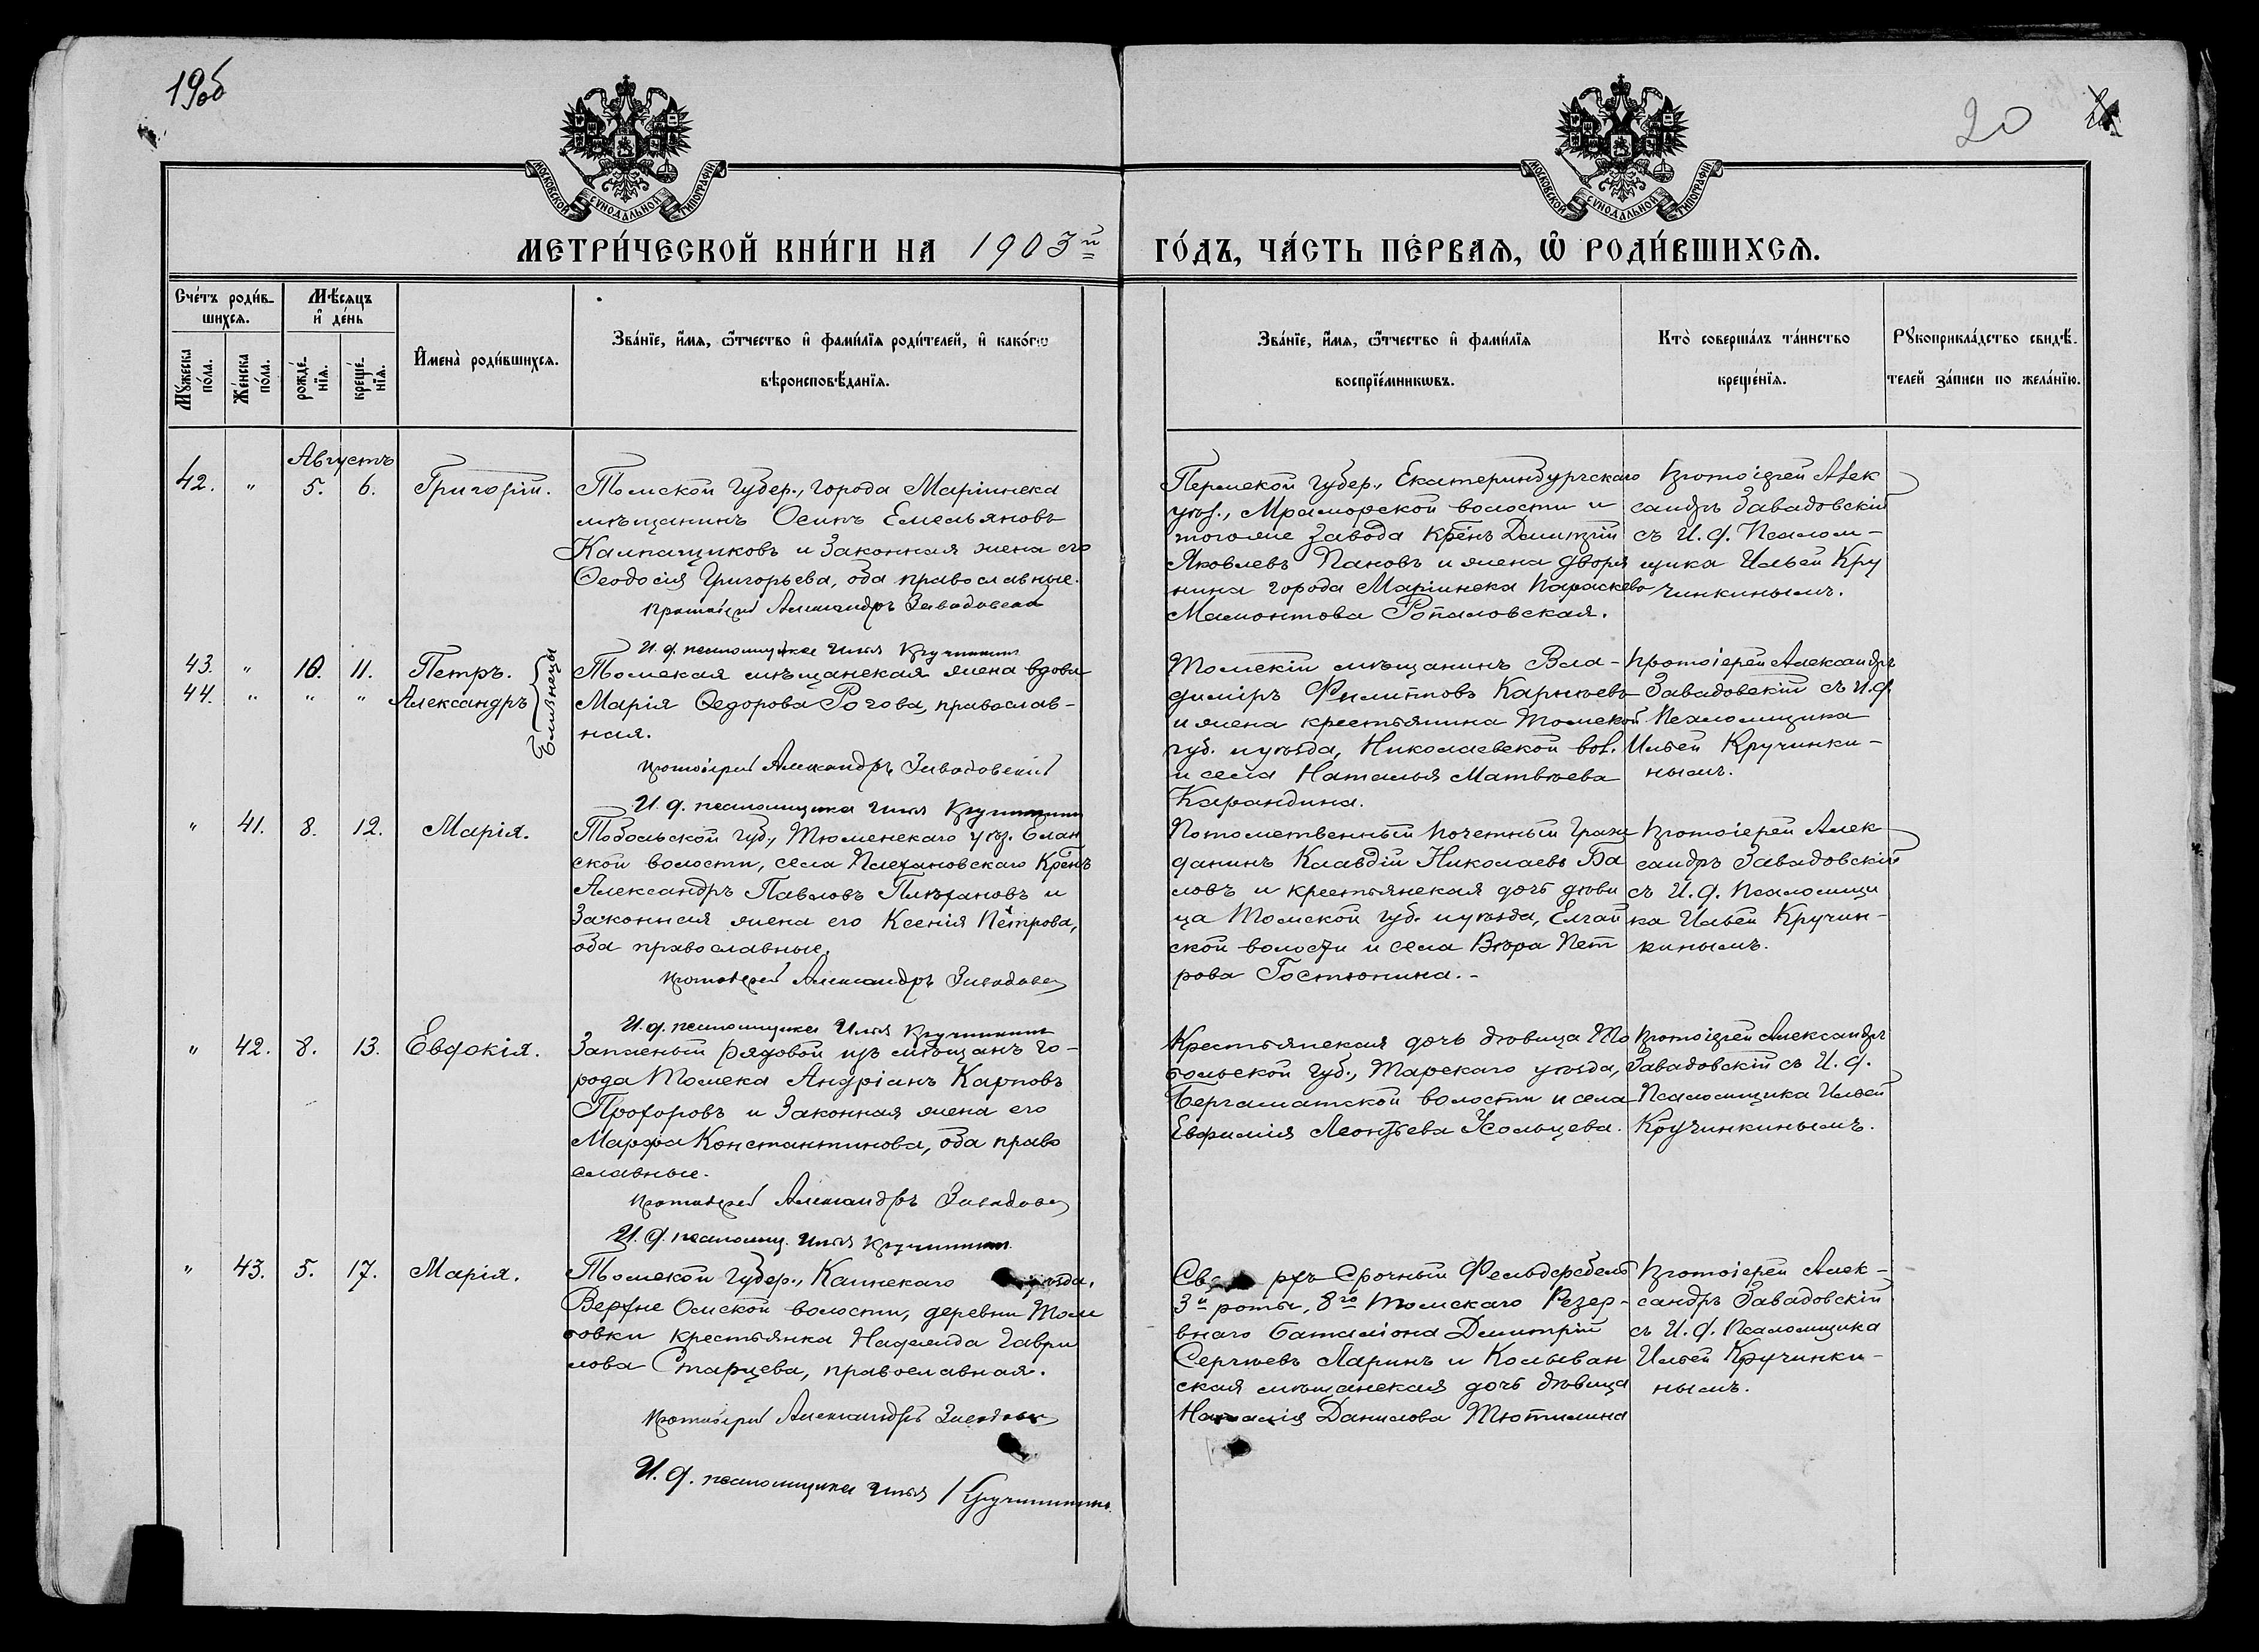 19об
20
МОСКОВСКОЙ СѴНОДАЛЬНОЙ ТИПОГРАФІИ
МОСКОВСКОЙ СѴНОДАЛЬНОЙ ТИПОГРАФІИ
МЕТРИ́ЧЕСКОЙ КНИ́ГИ НА 1903й
ГО́ДЪ, ЧА́СТЬ ПЕ́РВАѦ, Ѽ РОДИ́ВШИХСѦ.
Сче́тъ роди́в-
шихсѧ.
Мѣ́сѧцъ
и҆ де́нь
Мꙋ́жеска
по́ла.
Же́нска
по́ла.
рожде́-
нїѧ.
креще́-
нїѧ.
И҆мена̀ роди́вшихсѧ.
Зва́нїе, и҆́мѧ, ѻ҆́тчество и҆ фами́лїѧ роди́телей, и҆ како́гѡ
вѣроисповѣ́данїѧ.
Зва́нїе, и҆́мѧ, ѻ҆́тчество и҆ фами́лїѧ
воспрїе́мникѡвъ.
Кто̀ соверша́лъ та́инство
креще́нїѧ.
Рꙋкоприкла́дство свидѣ́-
телей за́писи по жела́нїю.
Августъ
42. " 5. 6. Григорій.
Томской Губер., города Маріинска
мѣщанинъ Осипъ Емельяновъ
Калпащиковъ и Законная жена его
Ѳеодосія Григорьева, оба православные.
Протоіерей Александръ Завадовскій
И. д. псаломщика Илья Кручинкинъ
Пермской губер., Екатеринбургскаго
уѣз., Мраморской волости и
тогоже завода Крѣнъ Димитрій
Яковлевъ Пановъ и жена дворя
нина города Маріинска Параскева
Мамонтова Ропаловская.
Протоіерей Алек
сандръ Завадовскій
съ И. д. Псалом-
щика Ильей Кру
чинкинымъ.
43. " 10. 11. Петръ.
44. " " " Александръ
Близнецы
Томская мѣщанская жена вдова
Марія Ѳедорова Рогова, православ-
ная.
Протоіерей Александръ Завадовскій
И. д. псаломщика Илья Кручинкинъ
Томскій мѣщанинъ Вла-
диміръ Филипповъ Карнѣевъ
и жена крестьянина Томской
губ. и уѣзда, Николаевской вол.
и села Наталья Матвѣева
Карандина.
Протоіерей Александръ
Завадовскій съ И. д.
Псаломщика
Ильей Кручинки-
нымъ.
" 41. 8. 12. Марія.
Тобольской губ., Тюменскаго уѣз. Елан
ской волости, села Плехановскаго Крѣнъ
Александръ Павловъ Плѣхановъ и
Законная жена его Ксенія Петрова,
оба православные.
Протоіерей Александръ Завадовск
И. д. псаломщика Илья Кручинкинъ
Потомственный почетный Граж
данинъ Клавдій Николаевъ Ба
ловъ и крестьянская дочь дѣви
ца Томской губ. и уѣзда, Елгай
ской волости и села Вѣра Пет
рова Гостюнина.-
Протоіерей Алек
сандръ Завадовскій
съ И. д. Псаломщи
ка Ильей Кручин-
кинымъ.
" 42. 8. 13. Евдокія.
Запасный рядовой изъ мѣщанъ го-
рода Томска Андріанъ Карповъ
Прохоровъ и Законная жена его
Марфа Константинова, оба право
славные.
Протоіерей Александръ Завадовс
И. д. псаломщ. Илья Кручинкин
Крестьянская дочь дѣвица То
больской губ., Тарскаго уѣзда,
Бергаматской волости и села
Евфимія Леонтьева Усольцева.
Протоіерей Александръ
Завадовскій съ И. д.
Псаломщика Ильей
Кручинкинымъ.
" 43. 5. 17. Марія.
Томской губер., Каинскаго уѣзда,
Верхне Омской волости, деревни Том
ловки крестьянка Надежда Гаври
лова Старцева, православная.
Протоіерей Александръ Завадовск
И. д. псаломщика Илья Кручинкинъ.
Сверхъ Срочный Фельдфебель
3й роты, 8го Томскаго Резер-
внаго баталіона Димитрій
Сергѣевъ Ларинъ и Колыван
ская мѣщанская дочь дѣвица
Наталія Данилова Тютилина
Протоіерей Алек-
сандръ Завадовскій
съ И. д. Псаломщика
Ильей Кручинки-
нымъ.